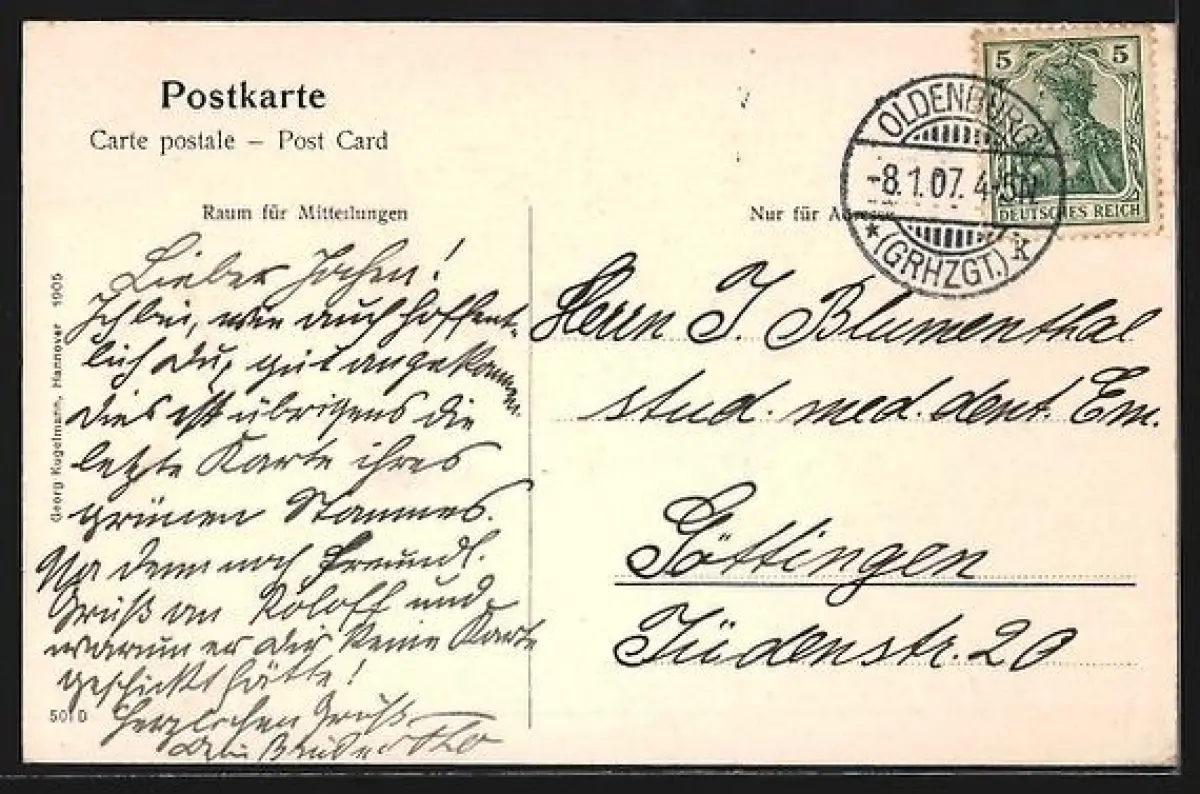 Postkarte
Carte postale – Post Card
Raum für Mitteilungen
Nur für Adresse
5 5
DEUTSCHES REICH
OLDENBURG
-8.1.07. 4-5N
*(GRHZGT.)* k
Georg Kugelmann, Hannover 1905
Lieber Jochen!
Ich bin, wie auch hoffent-
lich Du, gut angekommen.
Dies ist übrigens die
letzte Karte ihres
grünen Stammes.
Na denn noch freundl.
Gruß an Roloff und
warum er dir keine Karte
geschickt hätte!
Herzlichen Gruß
Dein Bruder
501 D
Herrn J. Blumenthal
stud. med. dent. Em.
Göttingen
Jüdenstr. 20